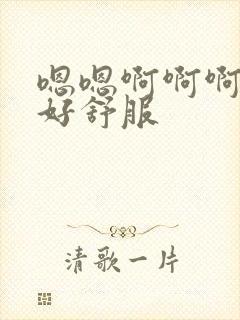 嗯嗯啊啊啊
好舒服
清歌一片